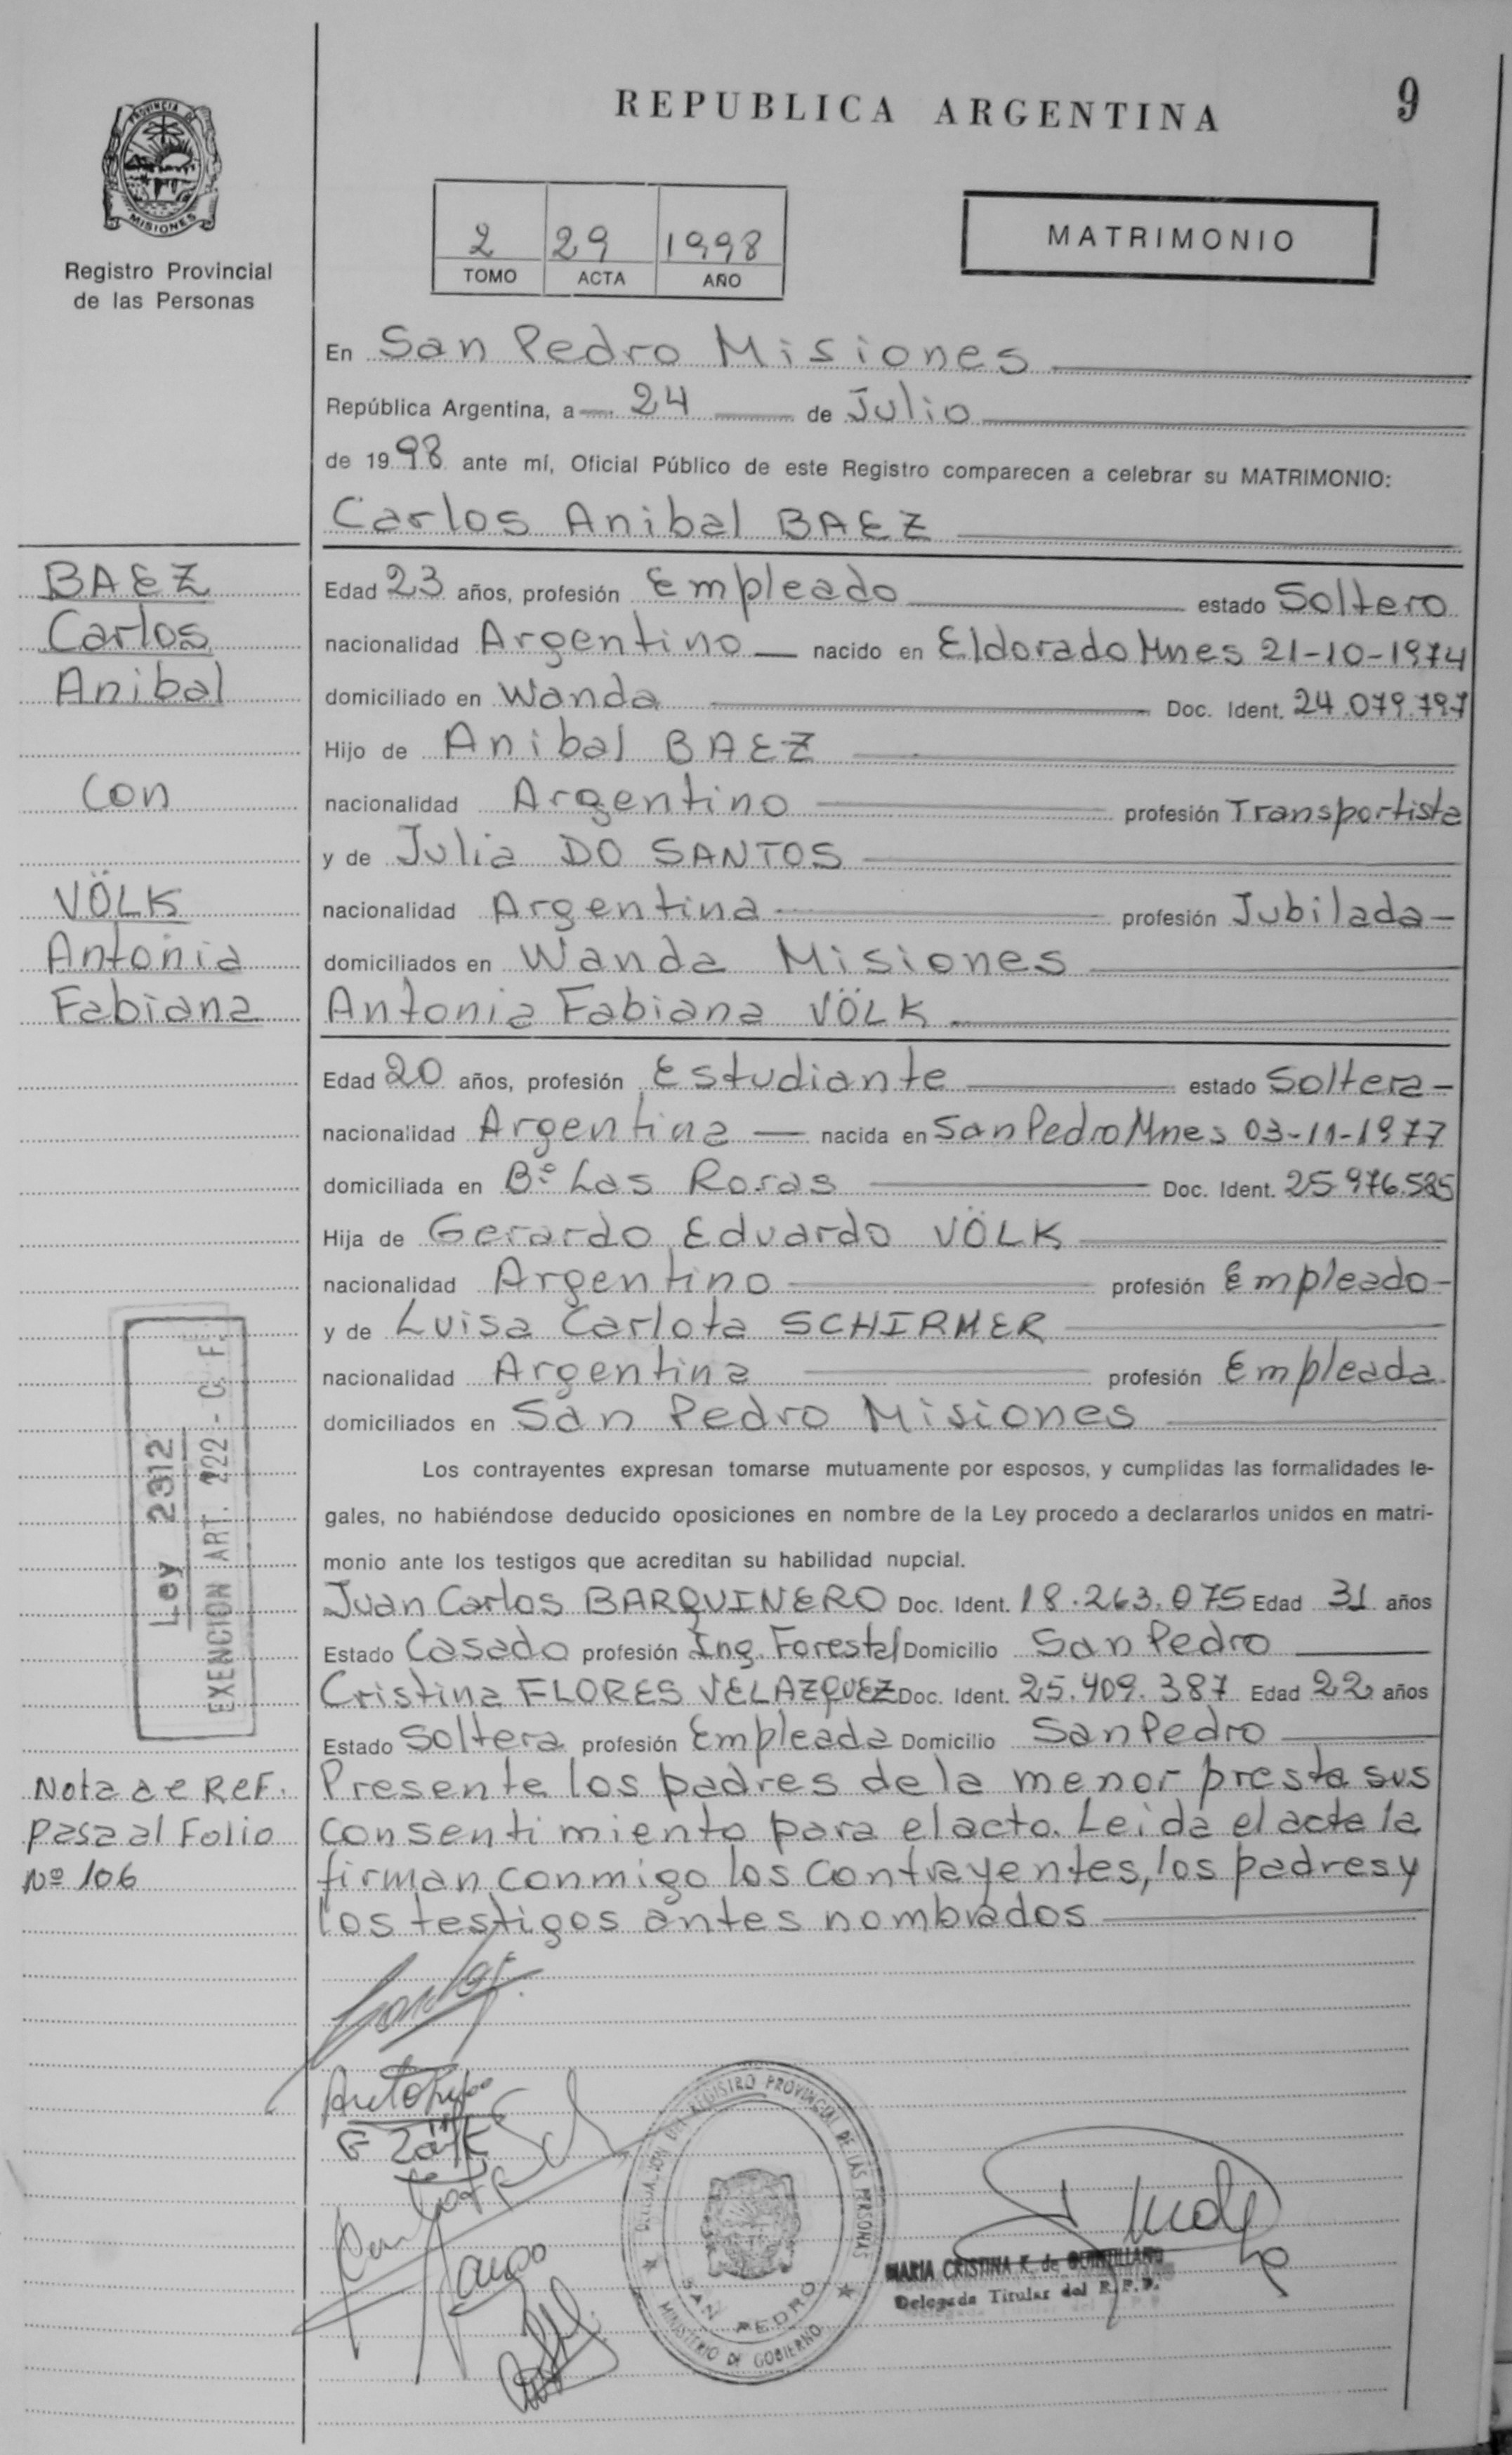 REPUBLICA ARGENTINA
9
PROVINCIA DE
MISIONES
Registro Provincial
de las Personas
2 29 1998
TOMO ACTA AÑO
MATRIMONIO
En San Pedro Misiones
República Argentina, a 24 de Julio
de 1998 ante mí, Oficial Público de este Registro comparecen a celebrar su MATRIMONIO:
Carlos Anibal BAEZ
BAEZ
Carlos
Anibal
con
VÖLK
Antonia
Fabiana
Edad 23 años, profesión Empleado estado Soltero
nacionalidad Argentino nacido en Eldorado Mnes 21-10-1974
domiciliado en Wanda Doc. Ident. 24.079.797
Hijo de Anibal BAEZ
nacionalidad Argentino profesión Transportista
y de Julia DO SANTOS
nacionalidad Argentina profesión Jubilada
domiciliados en Wanda Misiones
Antonia Fabiana VÖLK
Edad 20 años, profesión Estudiante estado Soltera
nacionalidad Argentina nacida en San Pedro Mnes 03-11-1977
domiciliada en Bº Las Rosas Doc. Ident. 25.976.585
Hija de Gerardo Eduardo VÖLK
nacionalidad Argentino profesión Empleado
y de Luisa Carlota SCHIRMER
nacionalidad Argentina profesión Empleada
domiciliados en San Pedro Misiones
Los contrayentes expresan tomarse mutuamente por esposos, y cumplidas las formalidades le-
gales, no habiéndose deducido oposiciones en nombre de la Ley procedo a declararlos unidos en matri-
monio ante los testigos que acreditan su habilidad nupcial.
Juan Carlos BARQUINERO Doc. Ident. 18.263.075 Edad 31 años
Estado Casado profesión Ing. Forestal Domicilio San Pedro
Cristina FLORES VELAZQUEZ Doc. Ident. 25.409.387 Edad 22 años
Estado Soltera profesión Empleada Domicilio San Pedro
Presente los padres de la menor presta sus
consentimiento para el acto. Leida el acta la
firman conmigo los contrayentes, los padres y
los testigos antes nombrados
Ley 2312
EXENCION ART. 222 - C. F.
Nota de Ref.
pasa al Folio
Nº 106
DEL REGISTRO PROVINCIAL DE LAS PERSONAS
SAN PEDRO
MINISTERIO DE GOBIERNO
MARIA CRISTINA K. de QUINTILLANO
Delegada Titular del R. P. P.